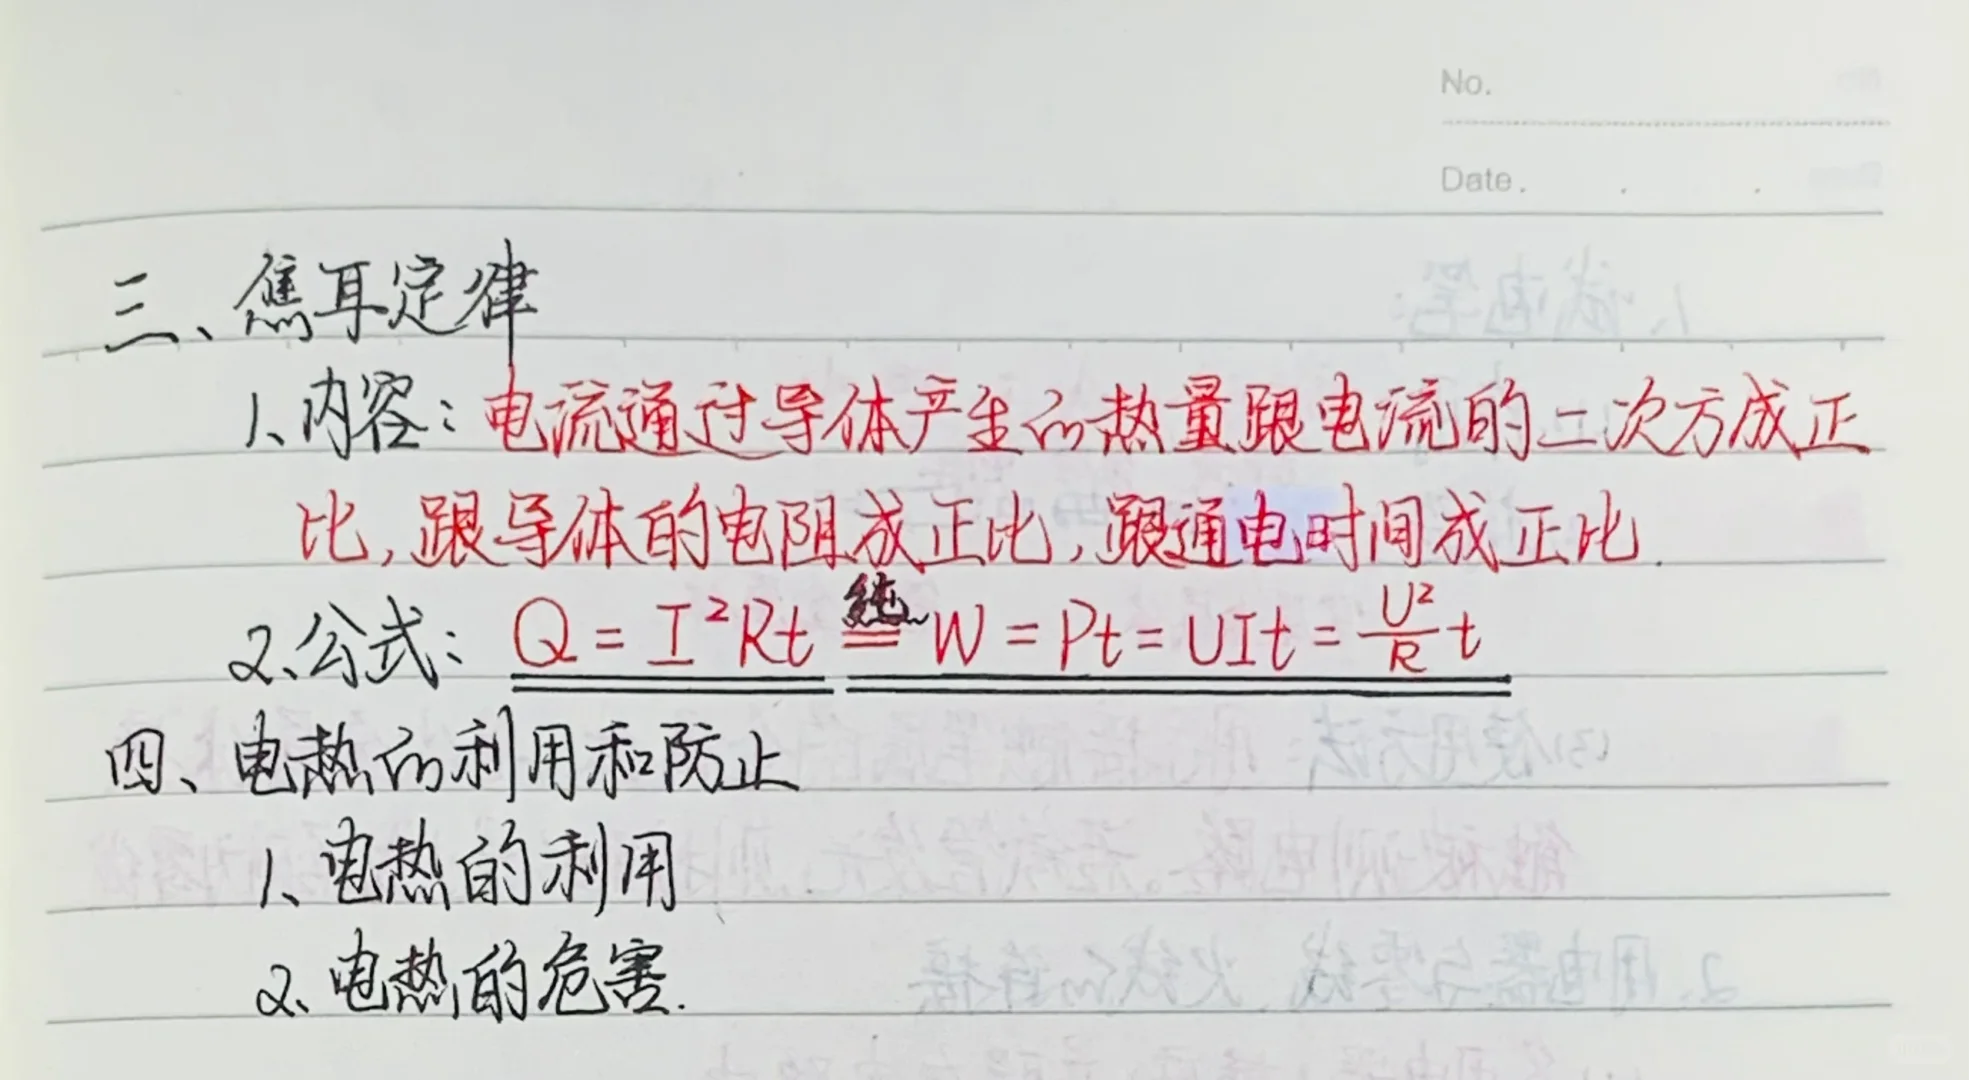 No.
Date.
三、焦耳定律
1、内容：电流通过导体产生的热量跟电流的二次方成正
比，跟导体的电阻成正比，跟通电时间成正比.
2、公式：Q = I²Rt 纯= W = Pt = UIt = U²/R t
四、电热的利用和防止
1、电热的利用
2、电热的危害.